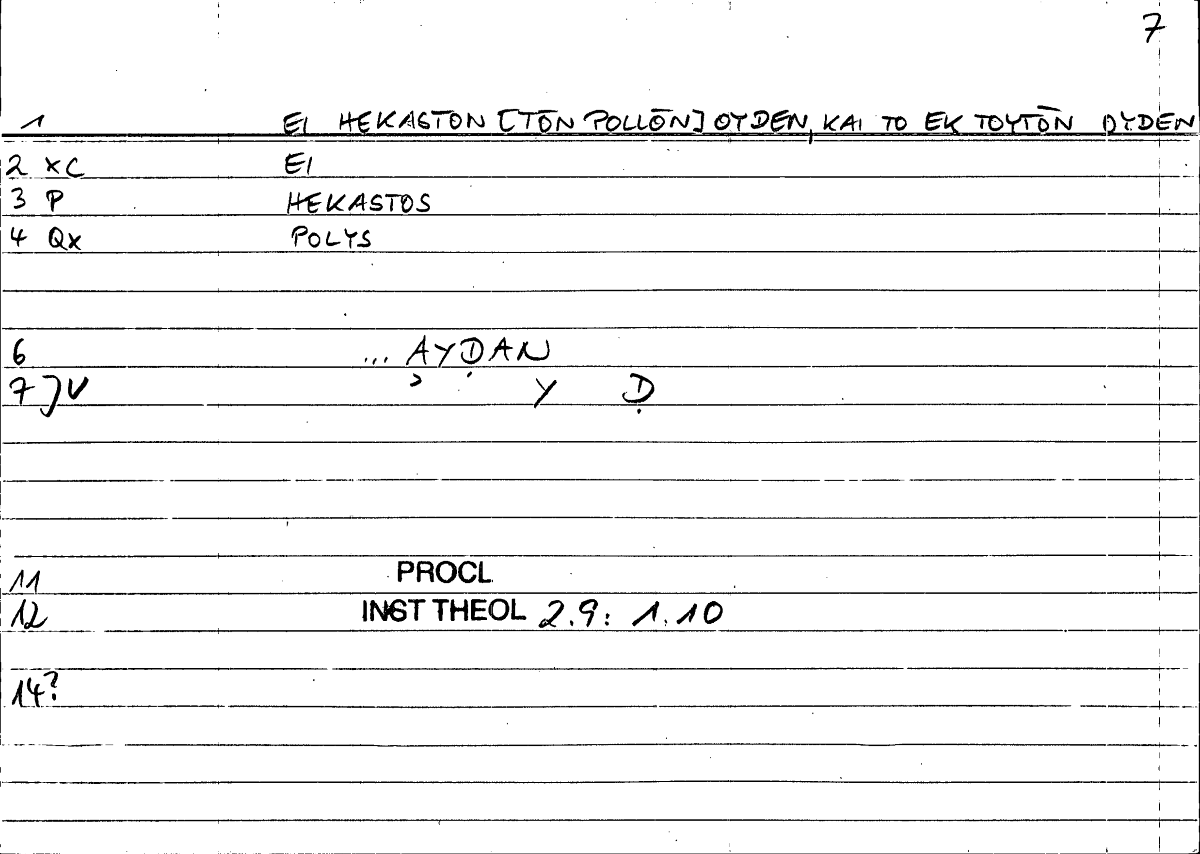 7
1 EI HEKASTON [TŌN POLLŌN] OYDEN, KAI TO EK TOYTŌN OYDEN
2 XC EI
3 P HEKASTOS
4 QX POLYS
6 ... AYḌAN
7 JV Y Ḍ
11 PROCL
12 INST THEOL 2.9: 1.10
14?